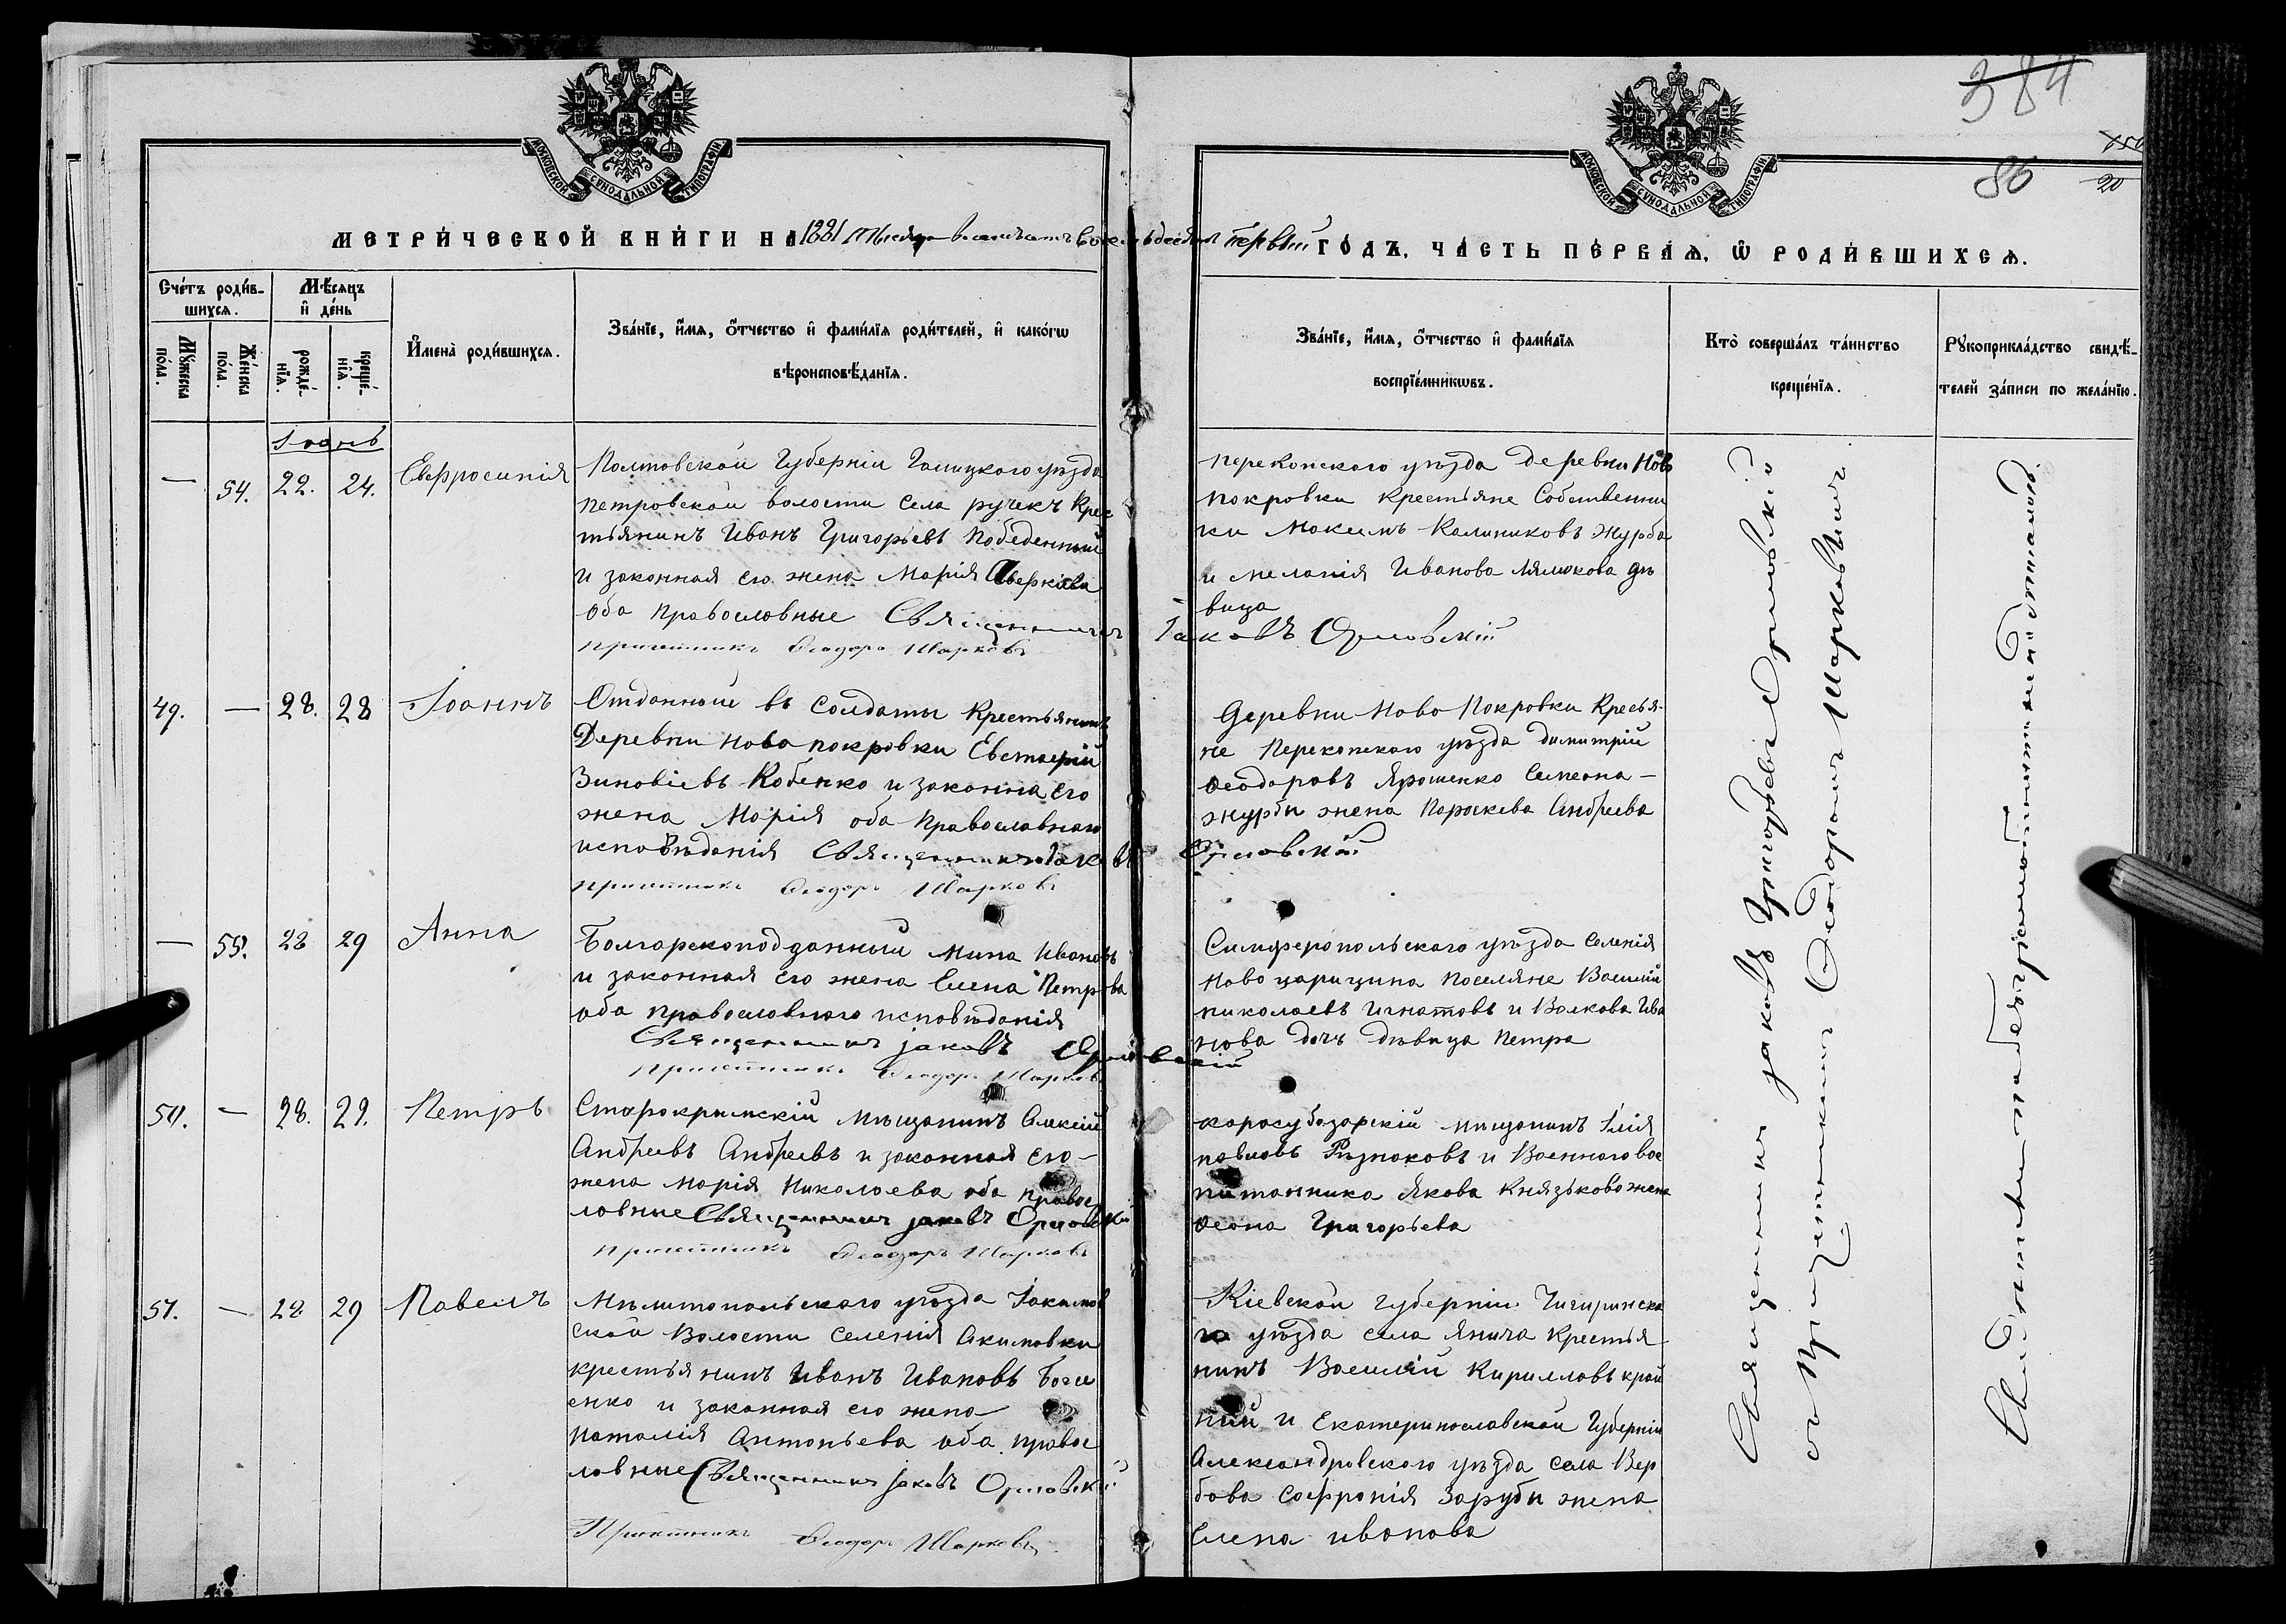 384
86
20
МОСКОВСКОЙ СѴНОДАЛЬНОЙ ТИПОГРАФІИ
МОСКОВСКОЙ СѴНОДАЛЬНОЙ ТИПОГРАФІИ
МЕТРИ́ЧЕСКОЙ КНИ́ГИ НА 1881 первый ГО́ДЪ, ЧА́СТЬ ПЕ́РВАЯ, Ѡ РОДИ́ВШИХСЯ.
Сче́тъ роди́в-
шихся.
Мѣ́сяцъ
и де́нь
Мꙋ́жеска
по́ла.
Же́нска
по́ла.
рожде́-
нїя.
креще́-
нїя.
Имена̀ роди́вшихся.
Зва́нїе, и́мя, о́тчество и фами́лїя роди́телей, и како́гѡ
вѣроисповѣ́данїя.
Зва́нїе, и́мя, о́тчество и фами́лїя
воспрїе́мникѡвъ.
Кто̀ соверша́лъ та́инство
креще́нїя.
Рꙋкоприкла́дство свидѣ́-
телей за́писи по жела́нїю.
Іюнь
— 54. 22. 24. Евфросинія
Полтовской Губерніи уѣзда
Петровской волости села ручекъ Крес
тьянинъ Иванъ Григорьевъ Победенный
и законная его жена Марія Аверкіева
оба православные Священникъ Іаковъ Орловскій
Причетникъ Ѳеодоръ Шарковъ
Перекопского уѣзда Деревни Ново
покровки Крестьяне Собственни
ки Максимъ Калиниковъ Журба
и Меланія Иванова Лялюкова дѣ
вица
49. — 28. 28 Іоаннъ
Отданный въ Солдаты Крестьянинъ
Деревни Ново покровки
Зиновіевъ Кобенко и законна его
жена Марія оба Православнаго
исповѣданія Священникъ Іаковъ Орловскій
Причетникъ Ѳеодоръ Шарковъ
Деревни Ново Покровки Кресья-
не Перекопского уѣзда Димитрій
Ѳеодоровъ Ярошенко Симеона —
журбы жена Параскева Андреева
— 55. 28 29 Анна
Болгарскоподданный Мина Ивановъ
и законная его жена Елена Петрова
оба православного исповѣданія
Священникъ Іаковъ Орловскій
Причетникъ Ѳеодоръ Шарковъ
Симферопольского уѣзда Селенія
Ново царицина Поселяне Василій
николаевъ Игнатовъ и Волкова Ива
нова дочь дѣвица Петра
50. — 28. 29. Петръ
Старокрымскій мѣщанинъ Алексій
Андреевъ Андреевъ и законная его —
жена Марія Николаева оба правос
лавные Священникъ Іаковъ Орловскій
Причетникъ Ѳеодоръ Шарковъ
карасубазарскій мѣщанинъ Илія
павловъ и Военного вос
питанника Якова Князькова жена
Григорьева
51. — 28. 29 Павелъ
Мѣлитопольского уѣзда Іакимов
ской Волости Селенія Акимовки
крестьянинъ Иванъ Ивановъ
енко и законная его жена
Наталія Антоньева оба правос
лавные Священникъ Іаковъ Орловскій
Причетникъ Ѳеодоръ Шарковъ
Кіевской Губерніи Чигиринска
го уѣзда села Янича Крестья
нинъ Василій Кирилловъ край
ній и Екатеринославской Губерніи
Александровского уѣзда Села Вер
бова Софронія Зарубы жена
Елена Иванова
Священникъ Іаковъ Григорьевъ Орловскій
съ Причетникомъ Ѳеодоромъ Шарковымъ